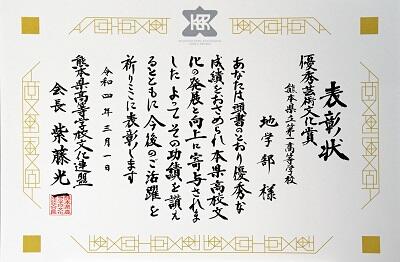 表彰状
優秀芸術文化賞
熊本県立第一高等学校
地学部 様
あなたは頭書のとおり優秀な
成績をおさめられ本県高校文
化の発展と向上に寄与されま
した よって その功績を讃え
るとともに 今後のご活躍を
祈りここに表彰します
令和四年三月一日
熊本県高等学校文化連盟
会長 紫藤光一